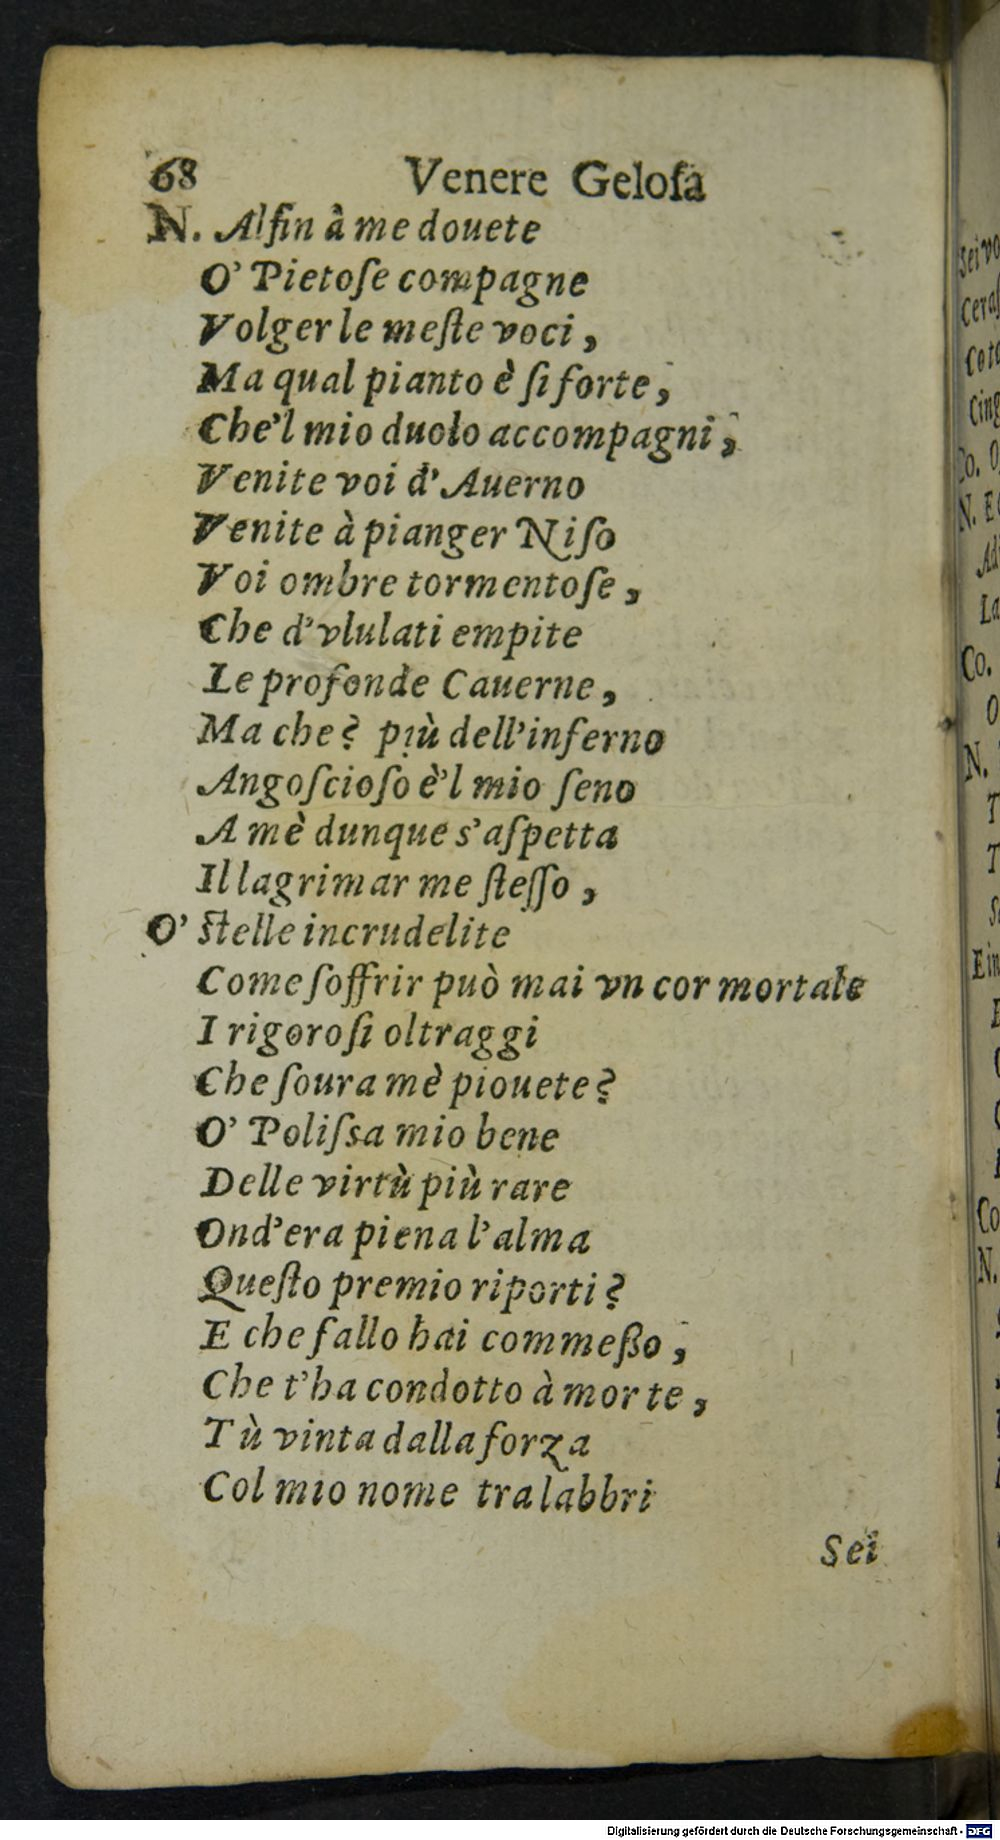 68 Venere Geloſa
N. Alfin à me douete
O' Pietoſe compagne
Volger le meſte voci,
Ma qual pianto è ſi forte,
Che'l mio duolo accompagni,
Venite voi d'Auerno
Venite à pianger Niſo
Voi ombre tormentoſe,
Che d'vlulati empite
Le profonde Cauerne,
Ma che? più dell'inferno
Angoſcioſo è'l mio ſeno
A mè dunque s'aſpetta
Il lagrimar me ſteſſo,
O' ſtelle incrudelite
Come ſoffrir può mai vn cor mortale
I rigoroſi oltraggi
Che ſoura mè piouete?
O' Poliſsa mio bene
Delle virtù più rare
Ond'era piena l'alma
Queſto premio riporti?
E che fallo hai commeßo,
Che t'ha condotto à morte,
Tù vinta dalla forza
Col mio nome tra labbri
Sei
Sei vo
Cera
Co
Cing
Co. O
N. E
Ad
La
Co.
O
N.
T
T
S
Ein
Co
N.
Digitalisierung gefördert durch die Deutsche Forschungsgemeinschaft - DFG